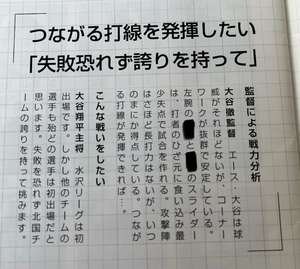 つながる打線を発揮したい
「失敗恐れず誇りを持って」
監督による戦力分析
大谷徹監督　エース・大谷は球
威がそれほどないが、コーナー
ワークが抜群で安定している。
左腕の
と
のスライダー
は、打者のひざ元に食い込み最
少失点で試合を作れる。攻撃陣
はさほど長打力はないが、いつ
のまにか得点している。つなが
る打線が発揮できれば…。
こんな戦いをしたい
大谷翔平主将　水沢リーグは初
出場です。しかし他のチームの
選手も殆どの選手は初出場だと
思います。失敗を恐れず北国チ
ームの誇りを持って挑みます。